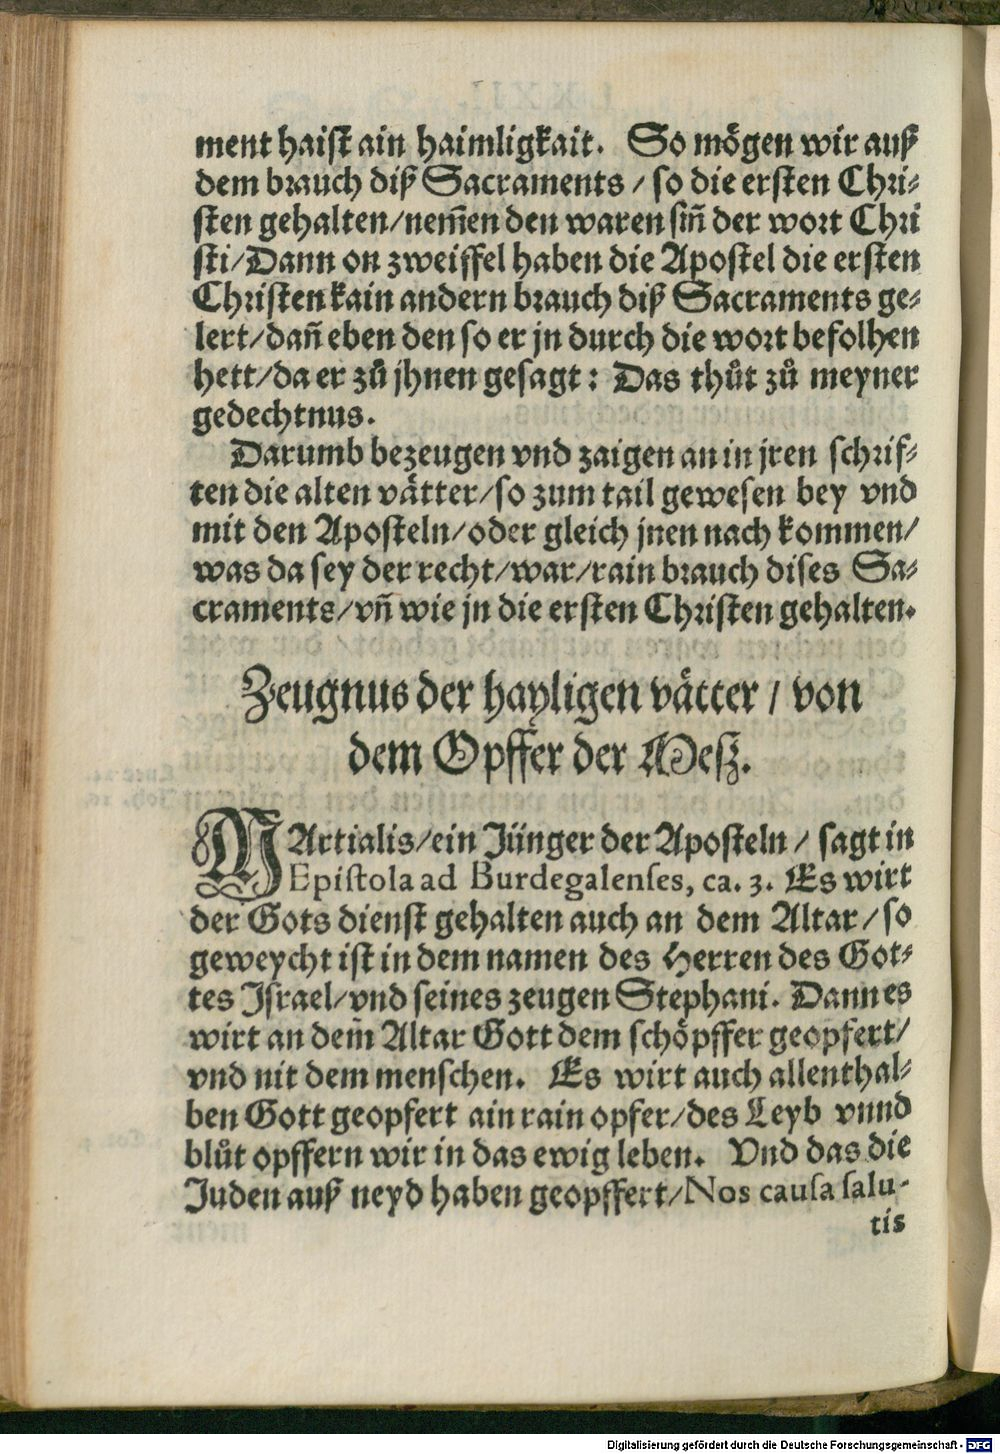 ment haist ain haimligkait. So mögen wir auß
dem brauch diß Sacraments / so die ersten Chri⸗
sten gehalten/nem̄en den waren sin̄ der wort Chri
sti/Dann on zweiffel haben die Apostel die ersten
Christen kain andern brauch diß Sacraments ge⸗
lert/dan̄ eben den so er jn durch die wort befolhen
hett/da er zů jhnen gesagt: Das thůt zů meyner
gedechtnus.
Darumb bezeugen vnd zaigen an in jren schrif⸗
ten die alten vätter/so zum tail gewesen bey vnd
mit den Aposteln/oder gleich jnen nach kommen/
was da sey der recht/war/rain brauch dises Sa⸗
craments/vn̄ wie jn die ersten Christen gehalten.
Zeugnus der hayligen vätter / von
dem Opffer der Mesz.
MArtialis/ein Jünger der Aposteln / sagt in
Epistola ad Burdegalenses, ca. 3. Es wirt
der Gots dienst gehalten auch an dem Altar/so
geweycht ist in dem namen des Herren des Got⸗
tes Israel/vnd seines zeugen Stephani. Dann es
wirt an dem̄ Altar Gott dem schöpffer geopfert/
vnd nit dem menschen. Es wirt auch allenthal⸗
ben Gott geopfert ain rain opfer/des Leyb vnnd
blůt opffern wir in das ewig leben. Vnd das die
Juden auß neyd haben geopffert/Nos causa salu-
tis
Digitalisierung gefördert durch die Deutsche Forschungsgemeinschaft - DFG